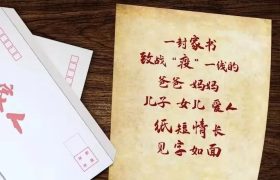 一封家书
致战“疫”一线的
爸爸 妈妈
儿子 女儿 爱人
纸短情长
见字如面